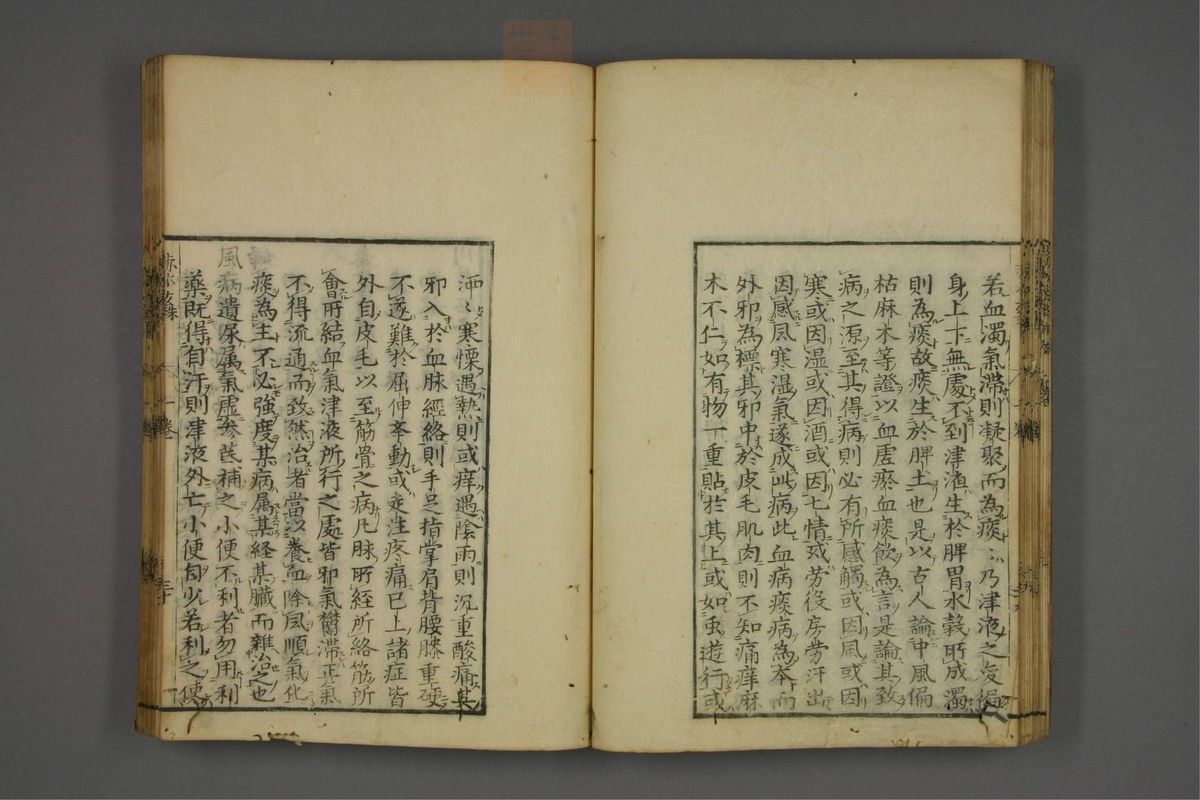 若血濁氣滯則凝聚而為痰〻乃津液之变徧
身上下無處不到津渣生於脾胃水穀所成濁
則為痰故痰生於脾土也是以古人論中風偏
枯麻木等證以血虛瘀血痰飲為言是論其致
病之源至其得病則必有所感觸或因風或因
寒或因温或因酒或因七情或劳役房劳汗出
因感風寒湿氣遂成此病此血病痰病為本而
外邪為標其邪中於皮毛肌肉則不知痛痒麻
木不仁如有物一重貼於其上或如虫遊行或
洒〻寒慄遇熱則或痒遇陰雨則沉重酸痛其
邪入於血脉經絡則手足指掌肩背腰膝重硬
不遂難於屈伸拳動或走注疼痛巳上諸症皆
外自皮毛以至筋骨之病凡脉所経所絡筋所
會所結血氣津液所行之處皆邪氣鬱滯正氣
不得流通而致然治者當以養血除風順氣化
痰為主不必強度某病属某経某臓而雜治之也
風病遺尿属氣虛参芪補之小便不利者勿用利
藥既得自汗則津液外亡小便自少若利之使
赤水玄珠
一卷